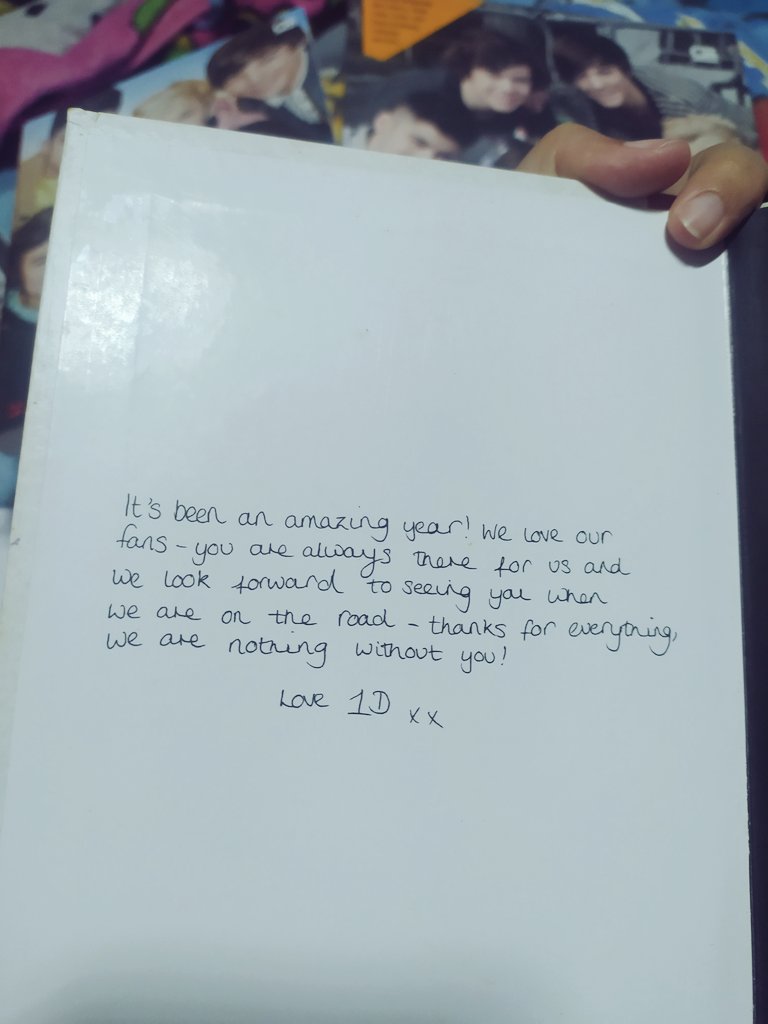 It's been an amazing year! We love our
fans - you are always there for us and
we look forward to seeing you when
we are on the road - thanks for everything,
we are nothing without you!
Love 1D xx